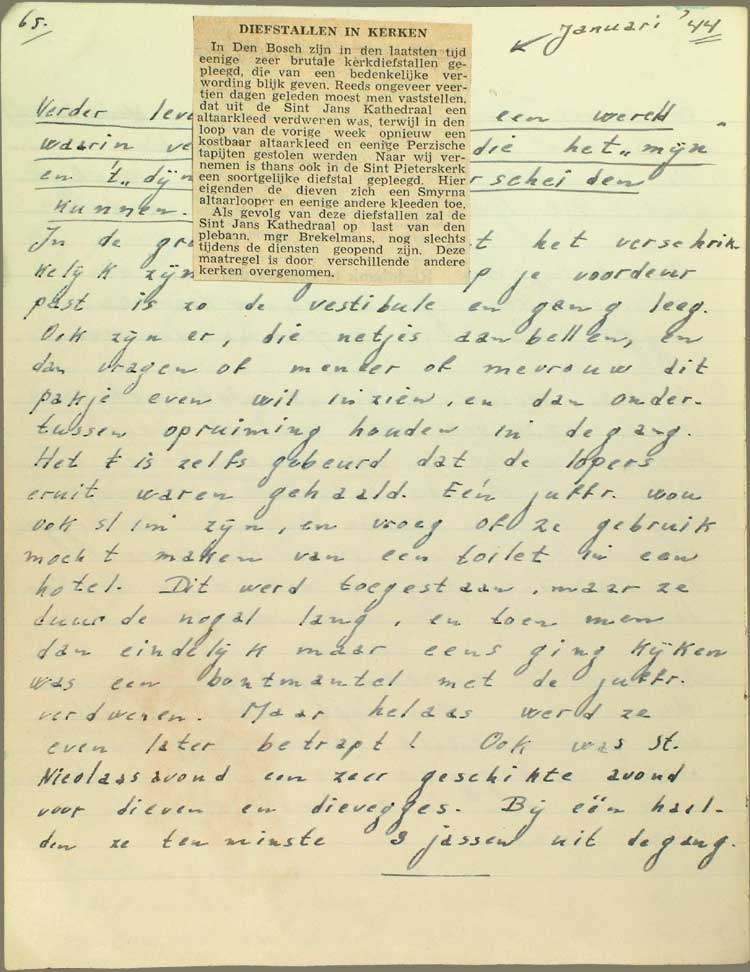 65.
Januari '44
DIEFSTALLEN IN KERKEN
In Den Bosch zijn in den laatsten tijd
eenige zeer brutale kerkdiefstallen ge-
pleegd, die van een bedenkelijke ver-
wording blijk geven. Reeds ongeveer veer-
tien dagen geleden moest men vaststellen,
dat uit de Sint Jans Kathedraal een
altaarkleed verdween was, terwijl in den
loop van de vorige week opnieuw een
kostbaar altaarkleed en eenige Perzische
tapijten gestolen werden Naar wij ver-
nemen is thans ook in de Sint Pieterskerk
een soortgelijke diefstal gepleegd. Hier
eigenden de dieven zich een Smyrna
altaarlooper en eenige andere kleeden toe.
Als gevolg van deze diefstallen zal de
Sint Jans Kathedraal op last van den
plebaan, mgr Brekelmans, nog slechts
tijdens de diensten geopend zijn. Deze
maatregel is door verschillende andere
kerken overgenomen.
Verder een wereld
waarin die het „mijn"
en 't „dijn
kunnen.
In de het verschrik-
kelijk zijn je voordeur
past is zo de vestibule en gang leeg.
Ook zijn er, die netjes aanbellen, en
dan vragen of meneer of mevrouw dit
pakje even wil inzien, en dan onder-
tussen opruiming houden in de gang.
Het is zelfs gebeurd dat de lopers
eruit waren gehaald. Eén juffr. wou
ook slim zijn, en vroeg of ze gebruik
mocht maken van een toilet in een
hotel. Dit werd toegestaan, maar ze
duurde nogal lang, en toen men
dan eindelijk maar eens ging kijken
was een bontmantel met de juffr.
verdwenen. Maar helaas werd ze
even later betrapt! Ook was St.
Nicolaasavond een zeer geschikte avond
voor dieven en dievegges. Bij één haal-
den ze tenminste 3 jassen uit de gang.